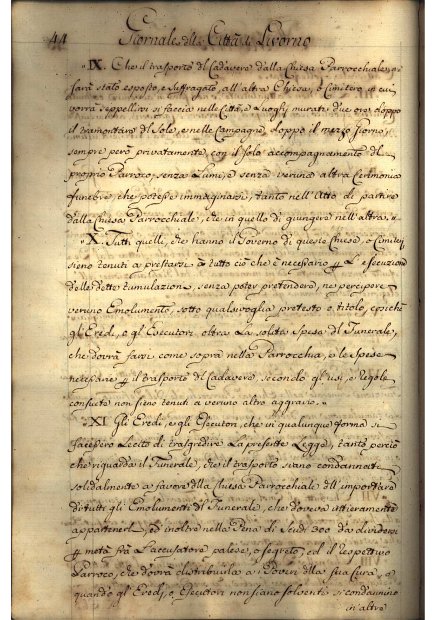 44 Giornale della Città di Livorno
"IX. Che il trasporto del Cadavere dalla Chiesa Parrocchiale, ove
sarà stato esposto, e suffragato, all'altra Chiesa, o Cimitero in cui
vorrà seppellirsi si faccia nelle Città, e Luoghi murati due ore doppo
il tramontare del Sole, e nelle Campagne, doppo il mezzo giorno,
sempre però privatamente, con il solo accompagnamento del
proprio Parroco, senza Lumi, e senza veruna altra Cerimonia
funebre che potesse immaginarsi, tanto nell'Atto di partire
dalla Chiesa Parrocchiale, che in quello di giungere nell'altra. "
"X. Tutti quelli, che hanno il Governo di queste Chiese, o Cimiteri
sieno tenuti a prestarsi a tutto ciò che è necessario p L'esecuzione
delle dette tumulazioni, senza poter pretendere, ne percipere
veruno Emolumento, sotto qualsivoglia pretesto o titolo, e
gl'Eredi, e gl'Esecutori oltra La solita Spesa del Funerale,
che dovrà farsi come sopra nella Parrocchia, e le Spese
necessarie p il trasporto del Cadavere, secondo gl'usi, e regole
consuete non sieno tenuti a veruno altro aggravio. "
"XI Gli Eredi, e gli Esecutori, che in qualunque forma si
facessero Lecito di trasgredire La presente Legge, tanto perciò
che riguarda il Funerale, che il trasporto siano condannati
solidalmente a favore della Chiesa Parrocchiale dell'importare
di tutti gli Emolumenti del Funerale, che doveva interamente
appartenerli, ed inoltre nella Pena di Scudi 300 da dividersi
p metà frà L'accusatore palese, o segreto, ed il respettivo
Parroco, che dovrà distribuirla a Poveri della sua Cura, e
quando gl'Eredi, o Esecutori non siano solventi si condannino
in altre